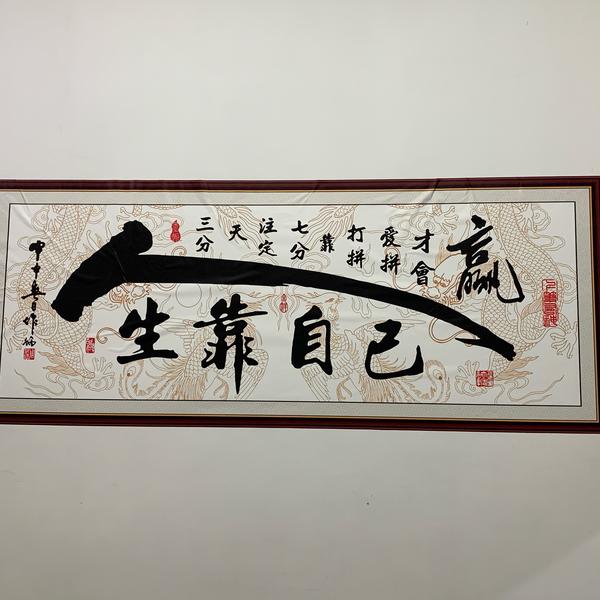 三分天注定七分靠打拼爱拼才會贏
人生靠自己